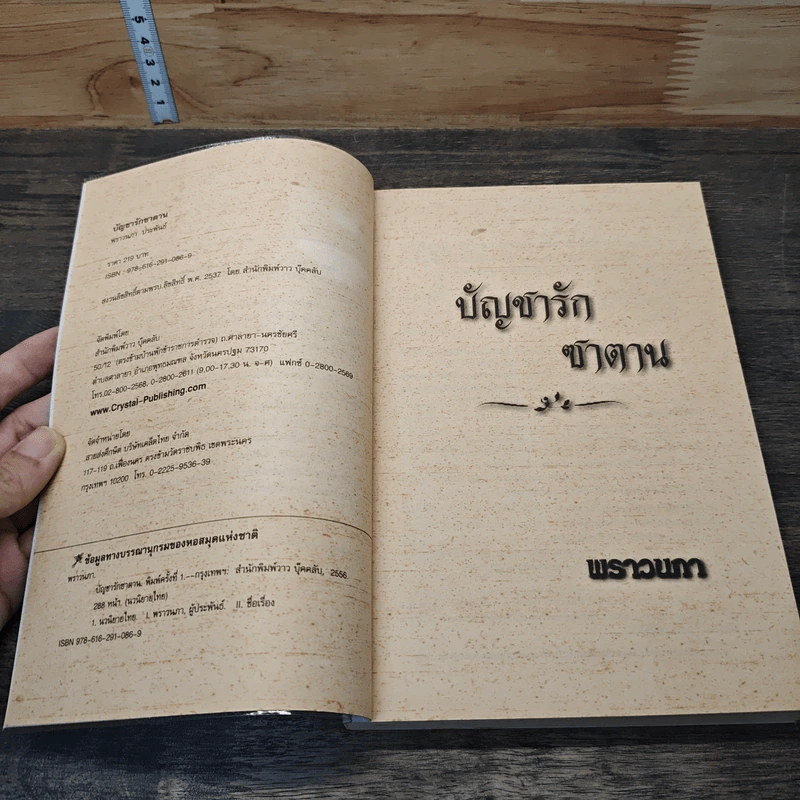 5 4 3 2 1
บัญชารักซาตาน
พราวนภา ประพันธ์
ราคา 219 บาท
ISBN : 978-616-291-086-9
สงวนลิขสิทธิ์ตามพรบ.ลิขสิทธิ์ พ.ศ. 2537 โดย สำนักพิมพ์วาว บุ๊คคลับ
จัดพิมพ์โดย
สำนักพิมพ์วาว บุ๊คคลับ
50/12 (ตรงข้ามบ้านพักข้าราชการตำรวจ) ถ.ศาลายา-นครชัยศรี
ตำบลศาลายา อำเภอพุทธมณฑล จังหวัดนครปฐม 73170
โทร.02-800-2568, 0-2800-2611 (9.00-17.30 น. จ-ศ) แฟกซ์ 0-2800-2569
www.Crystal-Publishing.com
จัดจำหน่ายโดย
สายส่งศึกษิต บริษัทเคล็ดไทย จำกัด
117-119 ถ.เฟื่องนคร ตรงข้ามวัดราชบพิธ เขตพระนคร
กรุงเทพฯ 10200 โทร. 0-2225-9536-39
ข้อมูลทางบรรณานุกรมของหอสมุดแห่งชาติ
พราวนภา.
บัญชารักซาตาน, พิมพ์ครั้งที่ 1.--กรุงเทพฯ: สำนักพิมพ์วาว บุ๊คคลับ, 2556.
288 หน้า. (นวนิยายไทย)
1. นวนิยายไทย. I. พราวนภา, ผู้ประพันธ์. II. ชื่อเรื่อง
ISBN 978-616-291-086-9
บัญชารัก
ซาตาน
พราวนภา